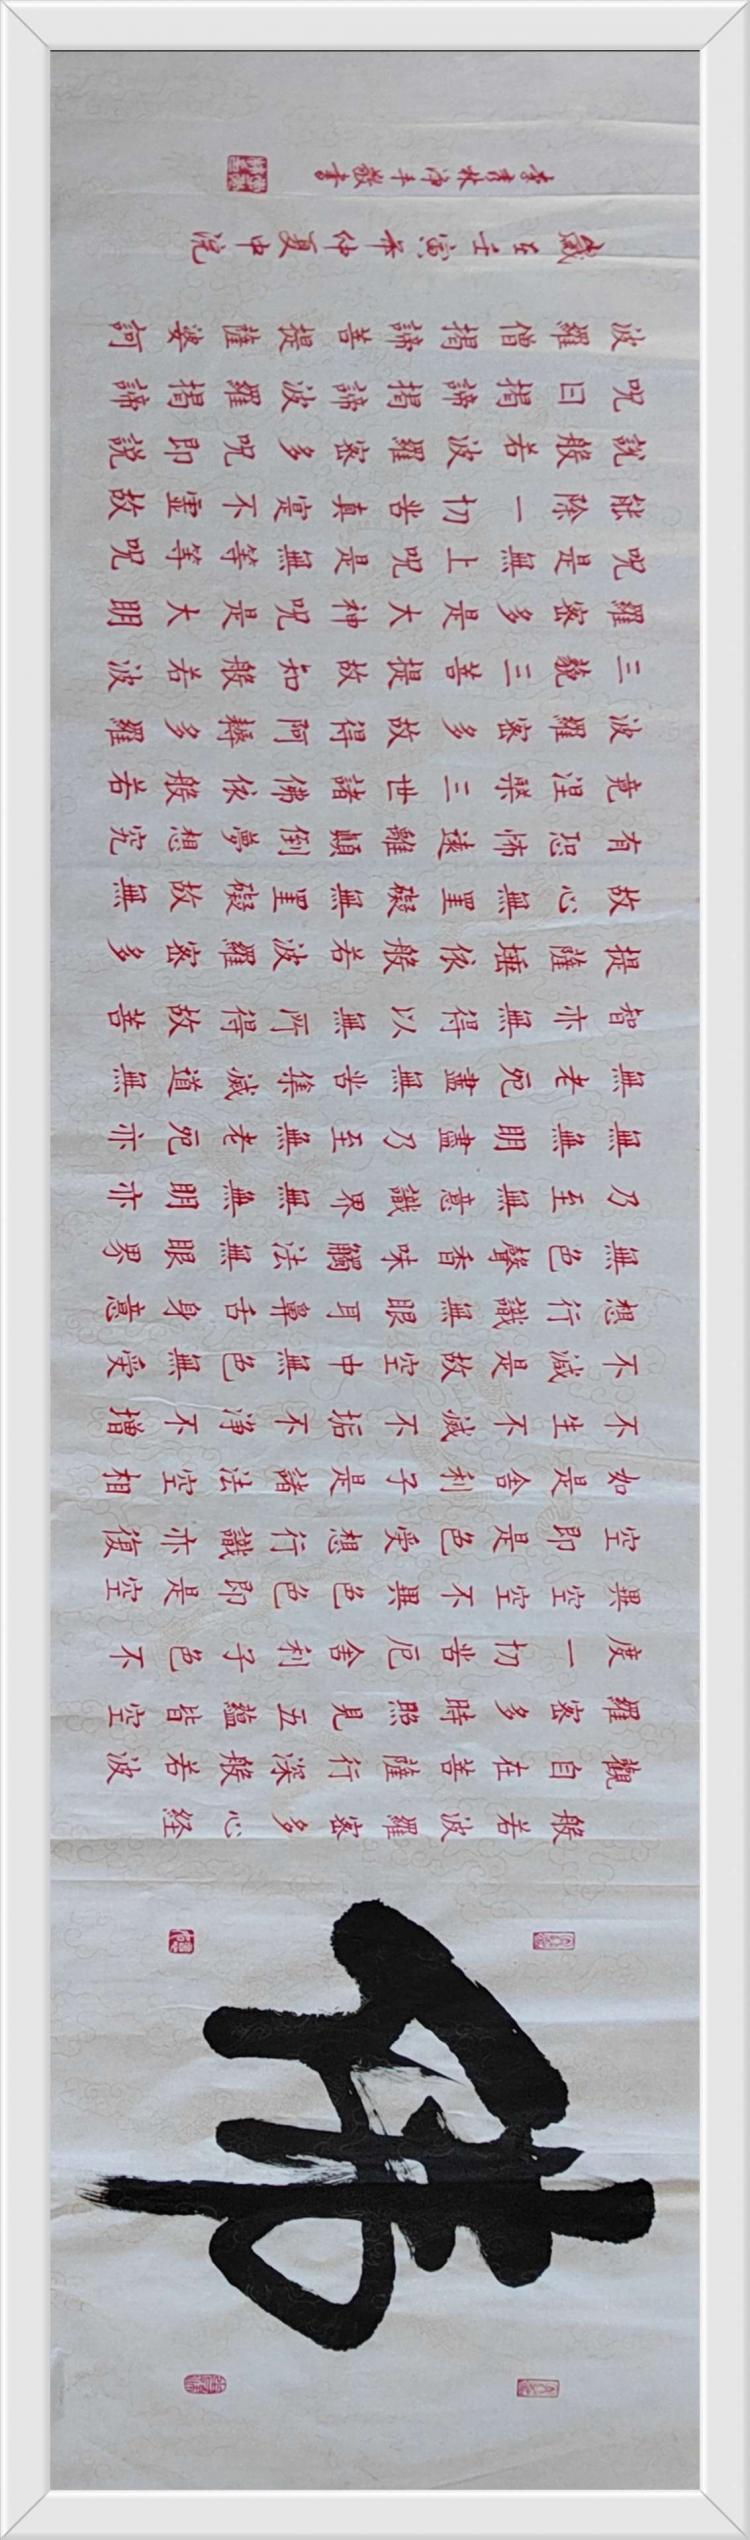 佛
般若波羅密多心経
觀自在菩薩行深般若波
羅密多時照見五蘊皆空
度一切苦厄舍利子色不
異空空不異色色即是空
空即是色受想行識亦復
如是舍利子是諸法空相
不生不滅不垢不淨不增
不減是故空中無色無受
想行識無眼耳鼻舌身意
無色聲香味觸法無眼界
乃至無意識界無無明亦
無無明盡乃至無老死亦
無老死盡無苦集滅道無
智亦無得以無所得故菩
提薩埵依般若波羅密多
故心無罣礙無罣礙故無
有恐怖遠離顛倒夢想究
竟涅槃三世諸佛依般若
波羅密多故得阿耨多羅
三藐三菩提故知般若波
羅密多是大神呪是大明
呪是無上呪是無等等呪
能除一切苦真寔不虛故
說般若波羅密多呪即說
呪曰揭諦揭諦波羅揭諦
波羅僧揭諦菩提薩婆訶
歲至壬寅年仲夏中浣
李秀林净手敬書